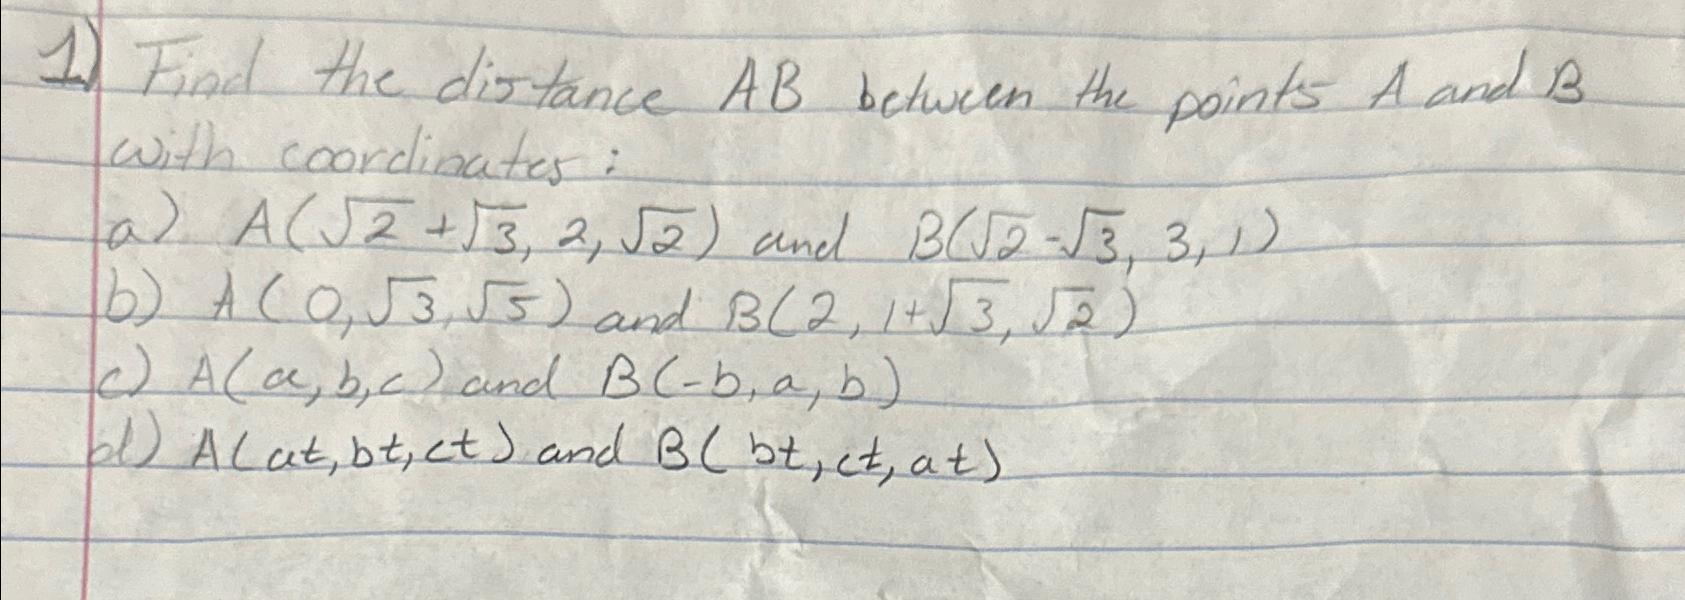 1) Find the distance AB between the points A and B
with coordinates:
a) A(√2+√3, 2, √2) and B(√2-√3, 3, 1)
b) A(0, √3, √5) and B(2, 1+√3, √2)
c) A(a, b, c) and B(-b, a, b)
d) A(at, bt, ct) and B(bt, ct, at)